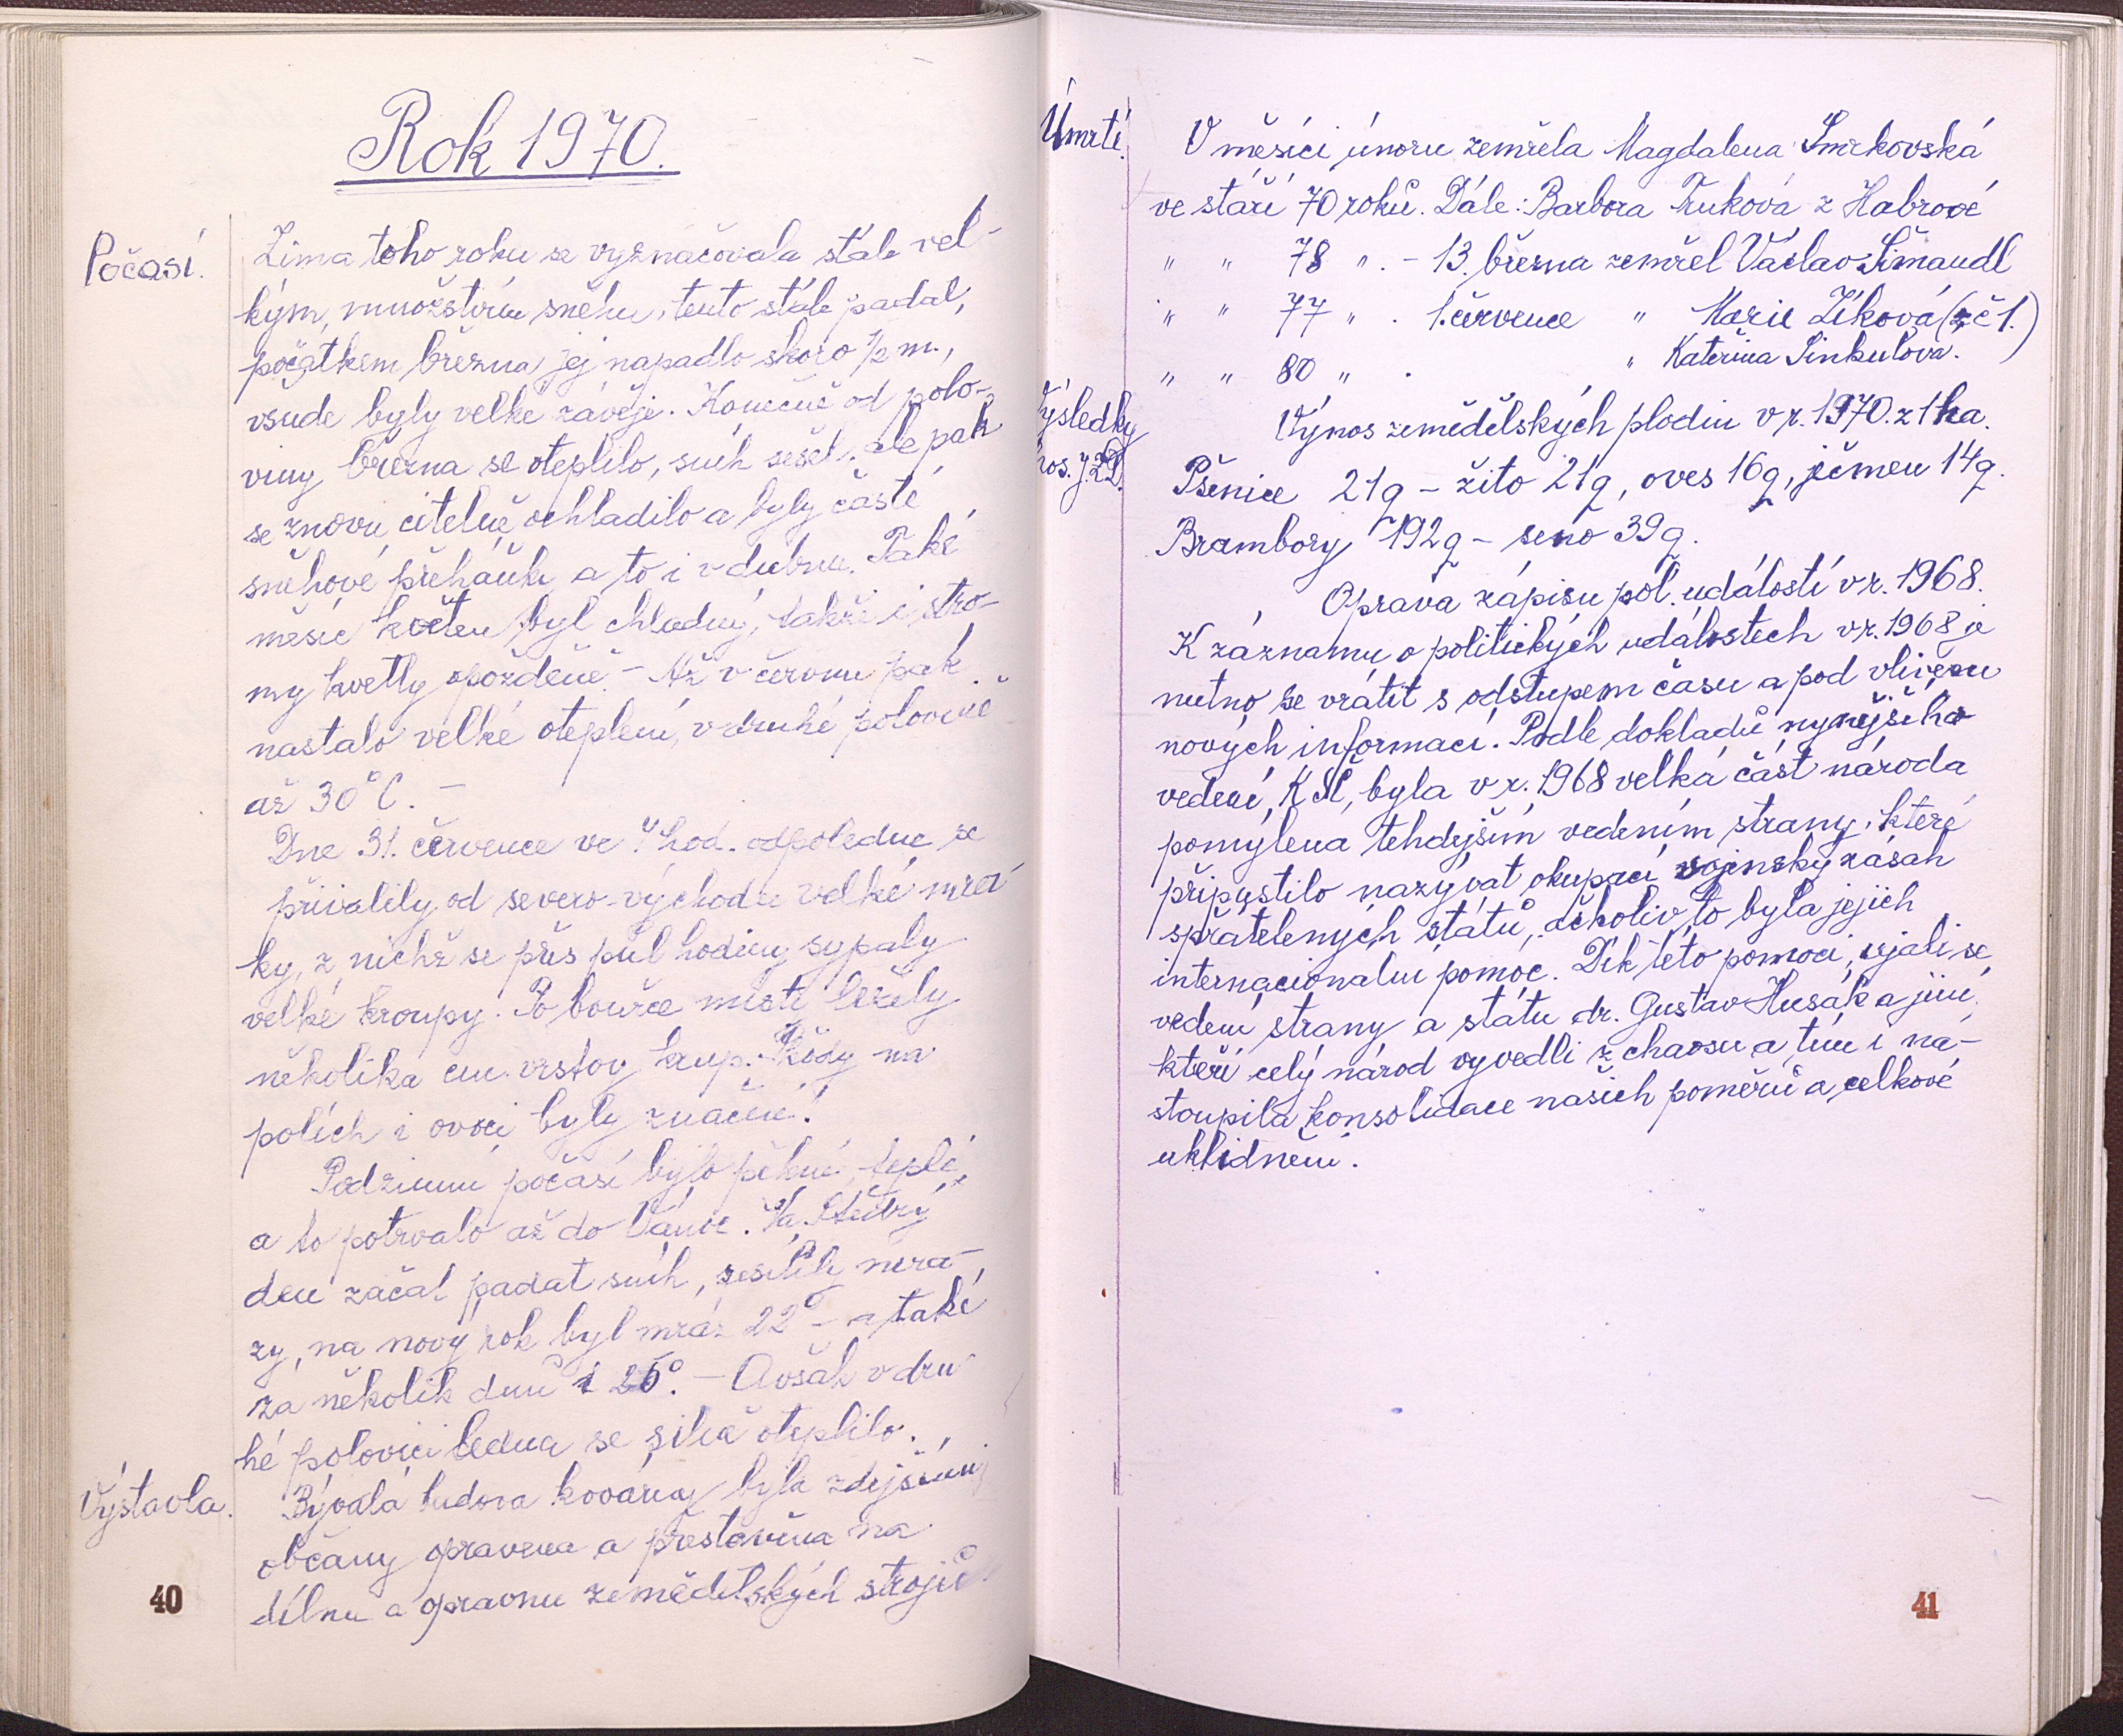 Rok 1970.
Počasí.
Zima toho roku se vyznačovala stále vel-
kým, množstvím sněhu, tento stále padal,
počátkem března jej napadlo skoro 1/2 m.,
všude byly velké závěje. Konečně od polo-
viny března se oteplilo, sníh sešel, ale pak
se znovu citelně ochladilo a byly časté
sněhové přeháňky a to i v dubnu. Také
měsíc květen byl chladný, takže i stro-
my kvetly opožděně - Až v červnu pak
nastalo velké oteplení, v druhé polovině
až 30°C. -
Dne 31. července ve 4 hod. odpoledne se
přivalily od severo-východu velké mra-
ky, z nichž se přes půl hodiny sypaly
velké kroupy. Po bouřce místy ležely
několika cm. vrstvy krup. Škody na
polích i ovoci byly značné!
Podzimní počasí bylo pěkné, teplé,
a to potrvalo až do Vánoc. Na Štědrý
den začal padat sníh, zesílily mra-
zy, na nový rok byl mráz 22° - a také
za několik dnů i 25°. - Avšak v dru-
hé polovici ledna se silně oteplilo.
Výstavba.
Bývalá budova kovárny byla zdejšími
občany opravena a přestavěna na
dílnu a opravnu zemědělských strojů
40
Úmrtí.
V měsíci únoru zemřela Magdalena Smrkovská
ve stáří 70 roků. Dále: Barbora Truková z Habrové
" " 78 ". - 13. března zemřel Václav Šimandl
" " 77 " . 1. července " Marie Zíková (z č 1.)
" " 80 " . " Kateřina Sinkulová.
Výsledky
hos. JZD.
Výnos zemědělských plodin v r. 1970. z 1 ha.
Pšenice 21q - žito 21q, oves 16q, ječmen 14q.
Brambory 192q - seno 39q.
Oprava zápisu pol. událostí v r. 1968.
K záznamu o politických událostech v r. 1968 je
nutno se vrátit s odstupem času a pod vlivem
nových informací. Podle dokladů nynějšího
vedení, KSČ, byla v r. 1968 velká část národa
pomýlena tehdejším vedením strany, které
připustilo nazývat okupací vojenský zásah
spřátelených států, ačkoliv to byla jejich
internacionalní pomoc. Dík této pomoci, ujali se
vedení strany a státu dr. Gustav Husák a jiní,
kteří celý národ vyvedli z chaosu a tím i na-
stoupila konsolidace našich poměrů a celkové
uklidnění.
41